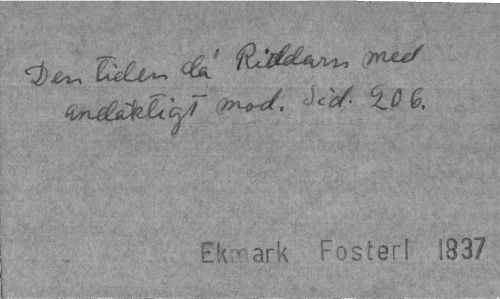 Den tiden då Riddarn med
andäktigt mod. Sid. 206.
Ekmark Fosterl 1837